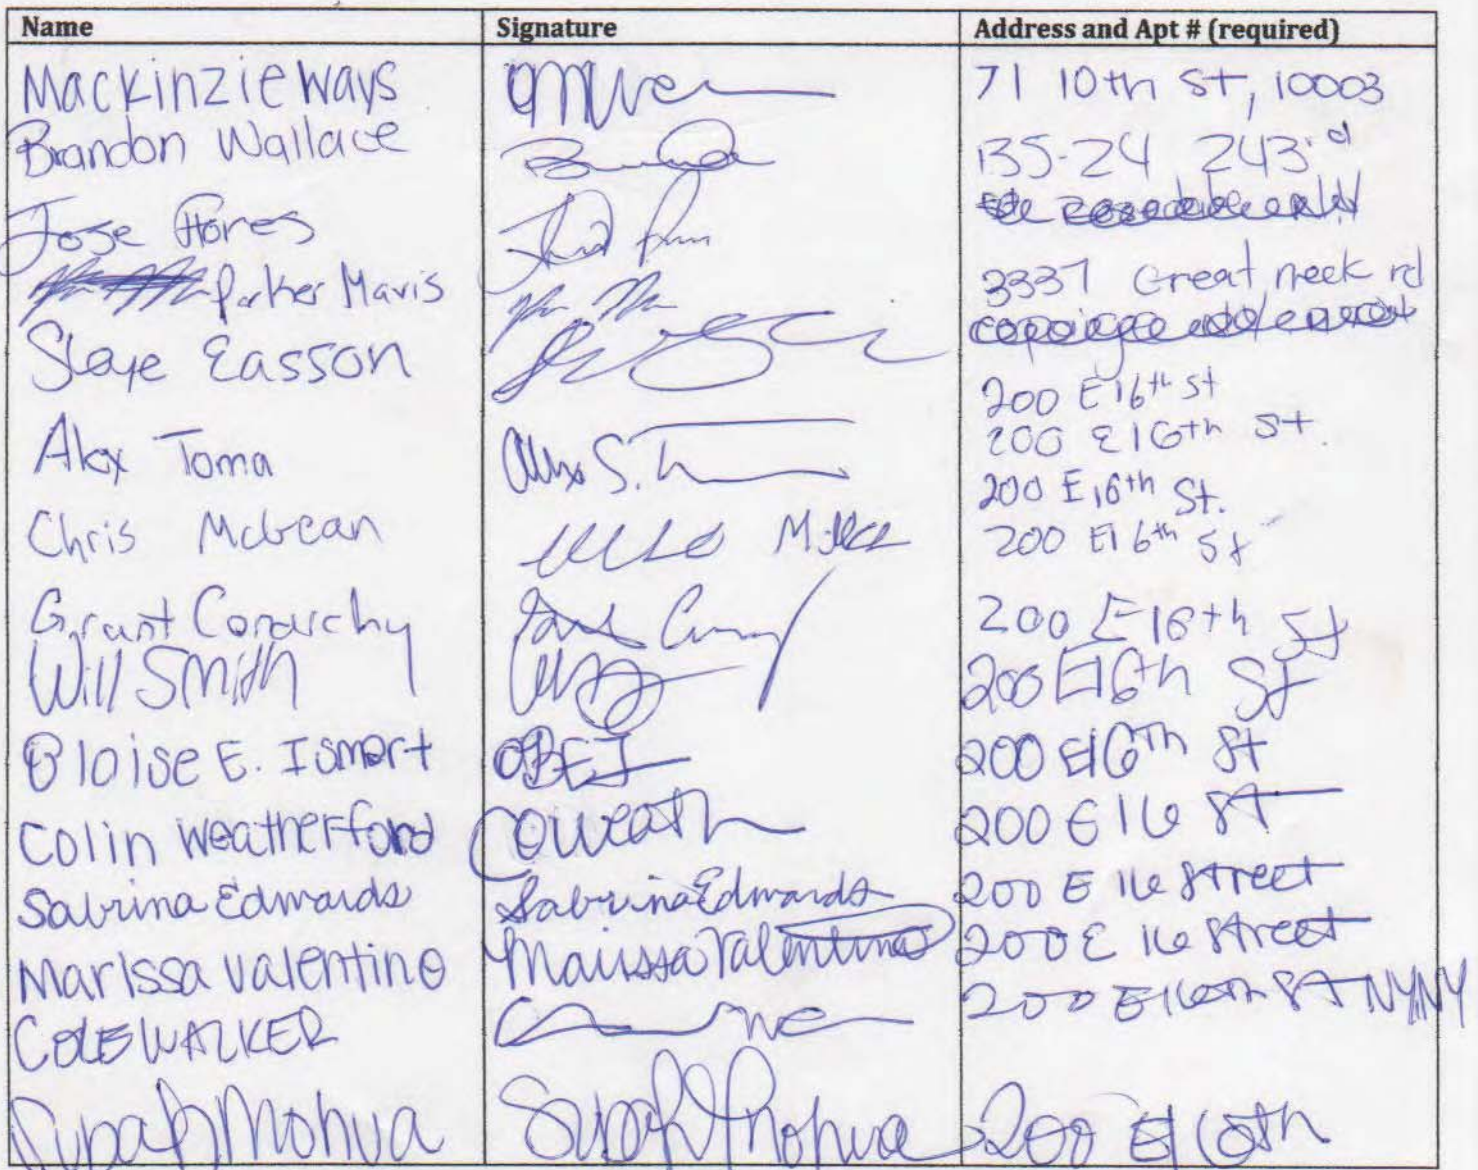 Name Signature Address and Apt # (required)
Mackinzie Ways 71 10th St, 10003
Brandon Wallace 135-24 243rd
Jose Flores
Parker Mavis 3337 Great neck rd
Slaye Easson
200 E 16th St
Alex Toma Alex S. 200 E 16th St.
200 E 16th St.
Chris McGean 200 E 16th St
Grant Conarchy 200 E 16th St
Will Smith 200 E 16th St
Bloise E. Ismert OBEI 200 E 16th St
Colin Weatherford Coweath 200 E 16 St
Sabrina Edwards Sabrina Edwards 200 E 16 Street
Marissa Valentino Marissa Valentino 200 E 16 Street
COLE WALKER 200 E 16th St NY, NY
Mohua Mohua 200 E 16th